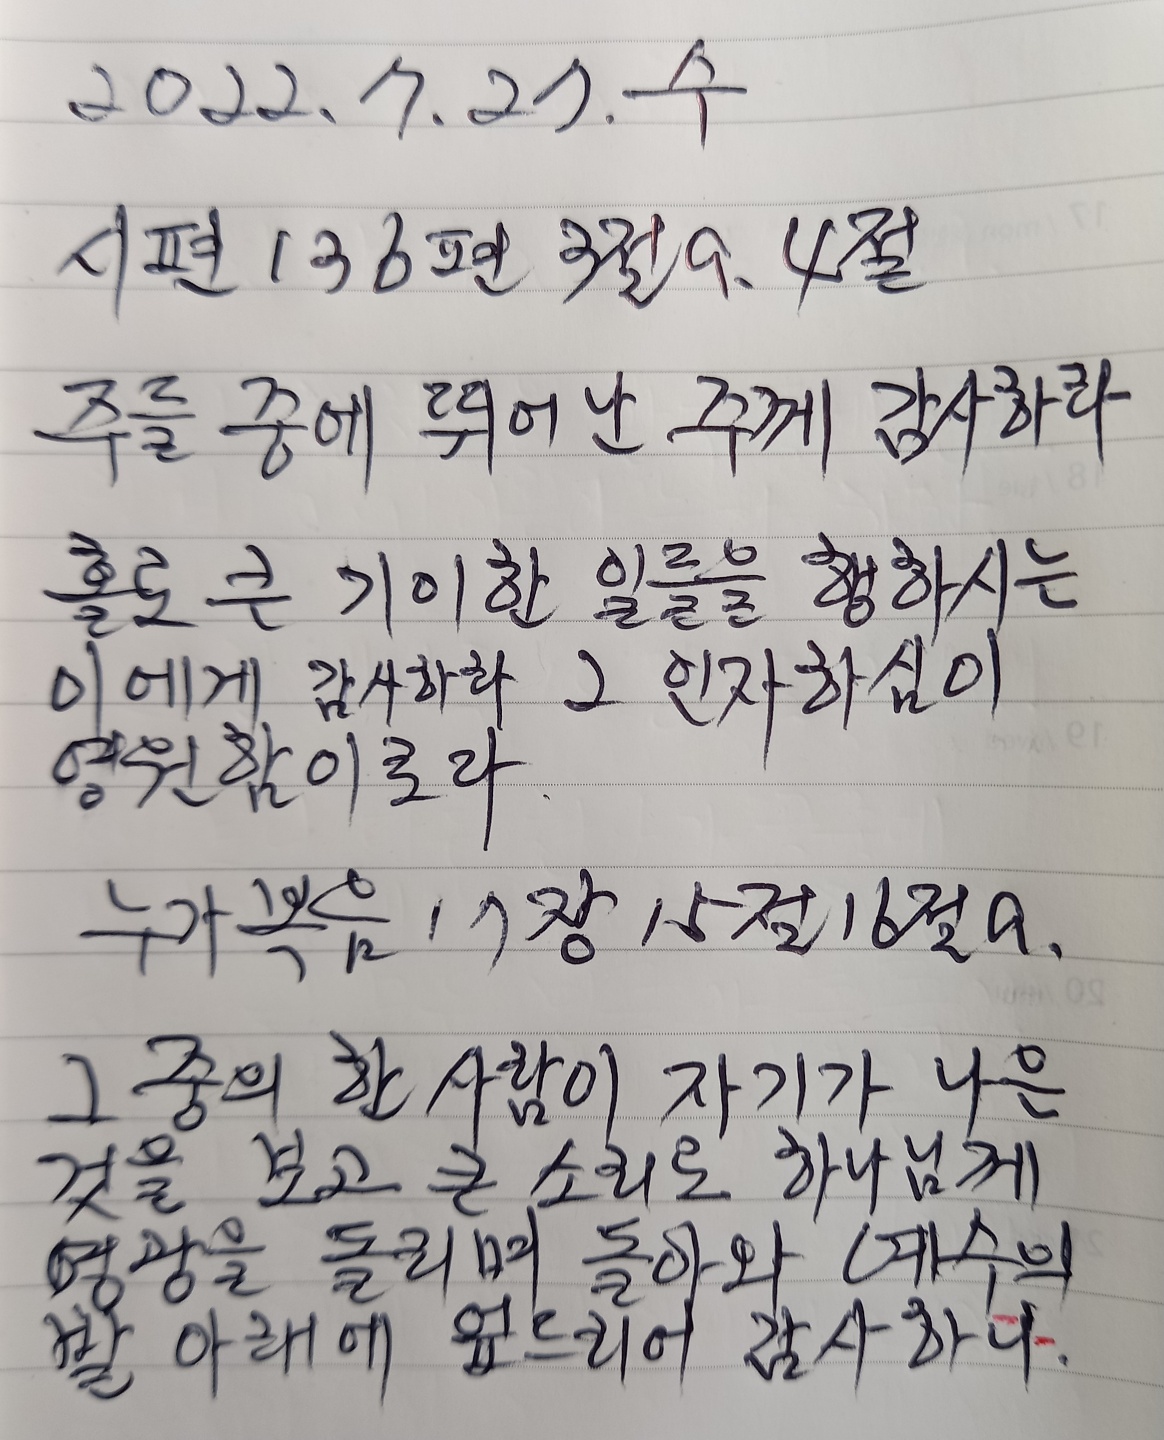 2022. 7. 27. 수
시편 136편 3절a. 4절
주를 중에 뛰어난 주께 감사하라
홀로 큰 기이한 일들을 행하시는
이에게 감사하라 그 인자하심이
영원함이로라.
누가복음 17장 15절 16절a.
그 중의 한 사람이 자기가 나은
것을 보고 큰 소리로 하나님께
영광을 돌리며 돌아와 예수의
발 아래에 엎드리어 감사하니.